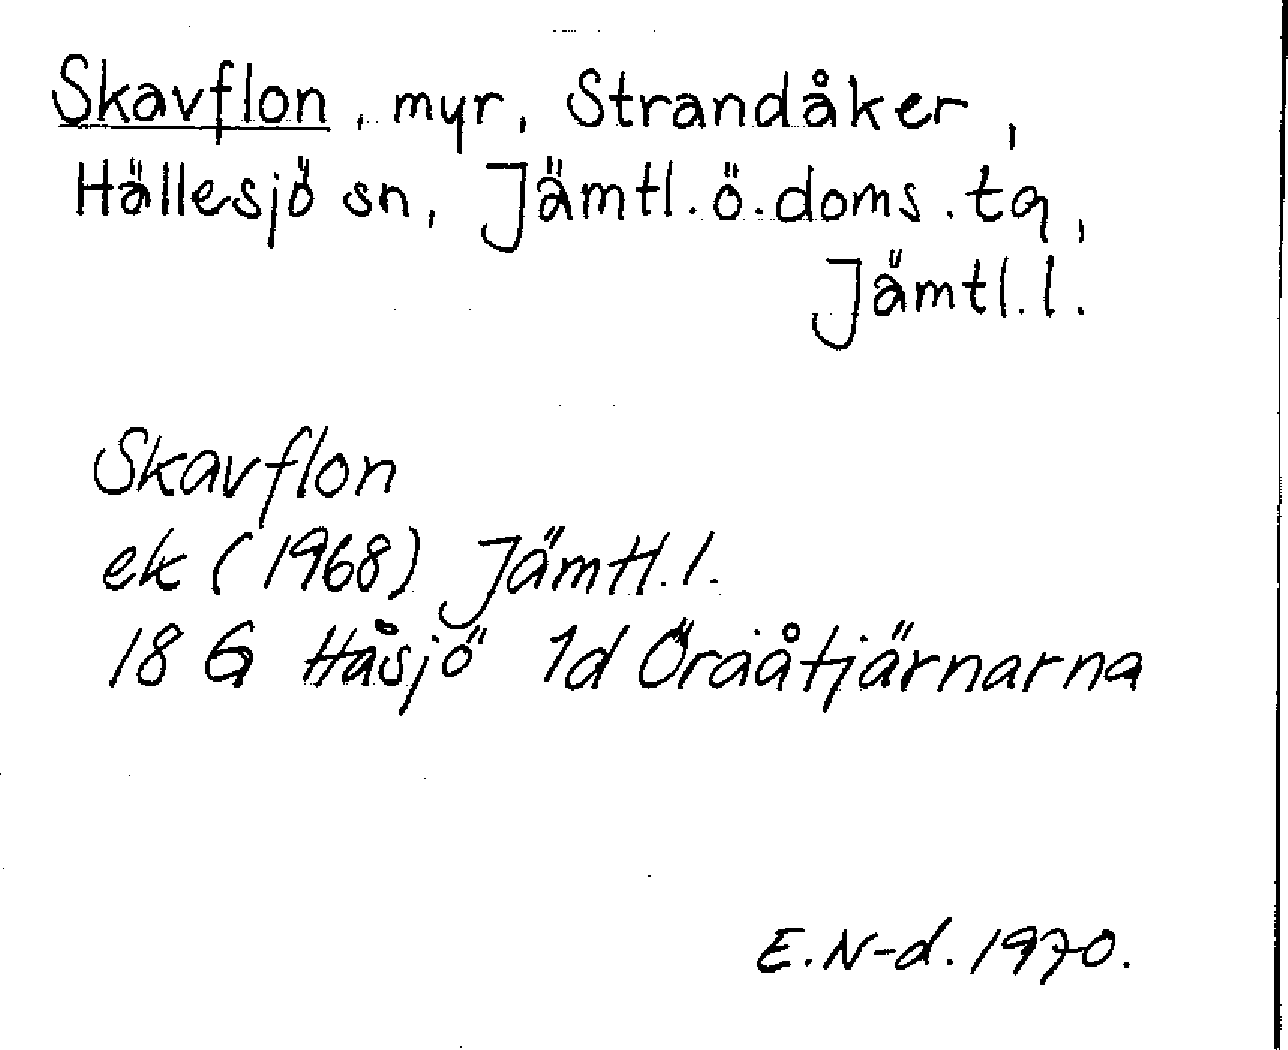 Skavflon, myr, Strandåker,
Hällesjö sn, Jämtl. ö. doms. tq,
Jämtl. l.
Skavflon
ek (1968) Jämtl. l.
18 G Håsjö 1d Öraåtjärnarna
E. N-d. 1970.